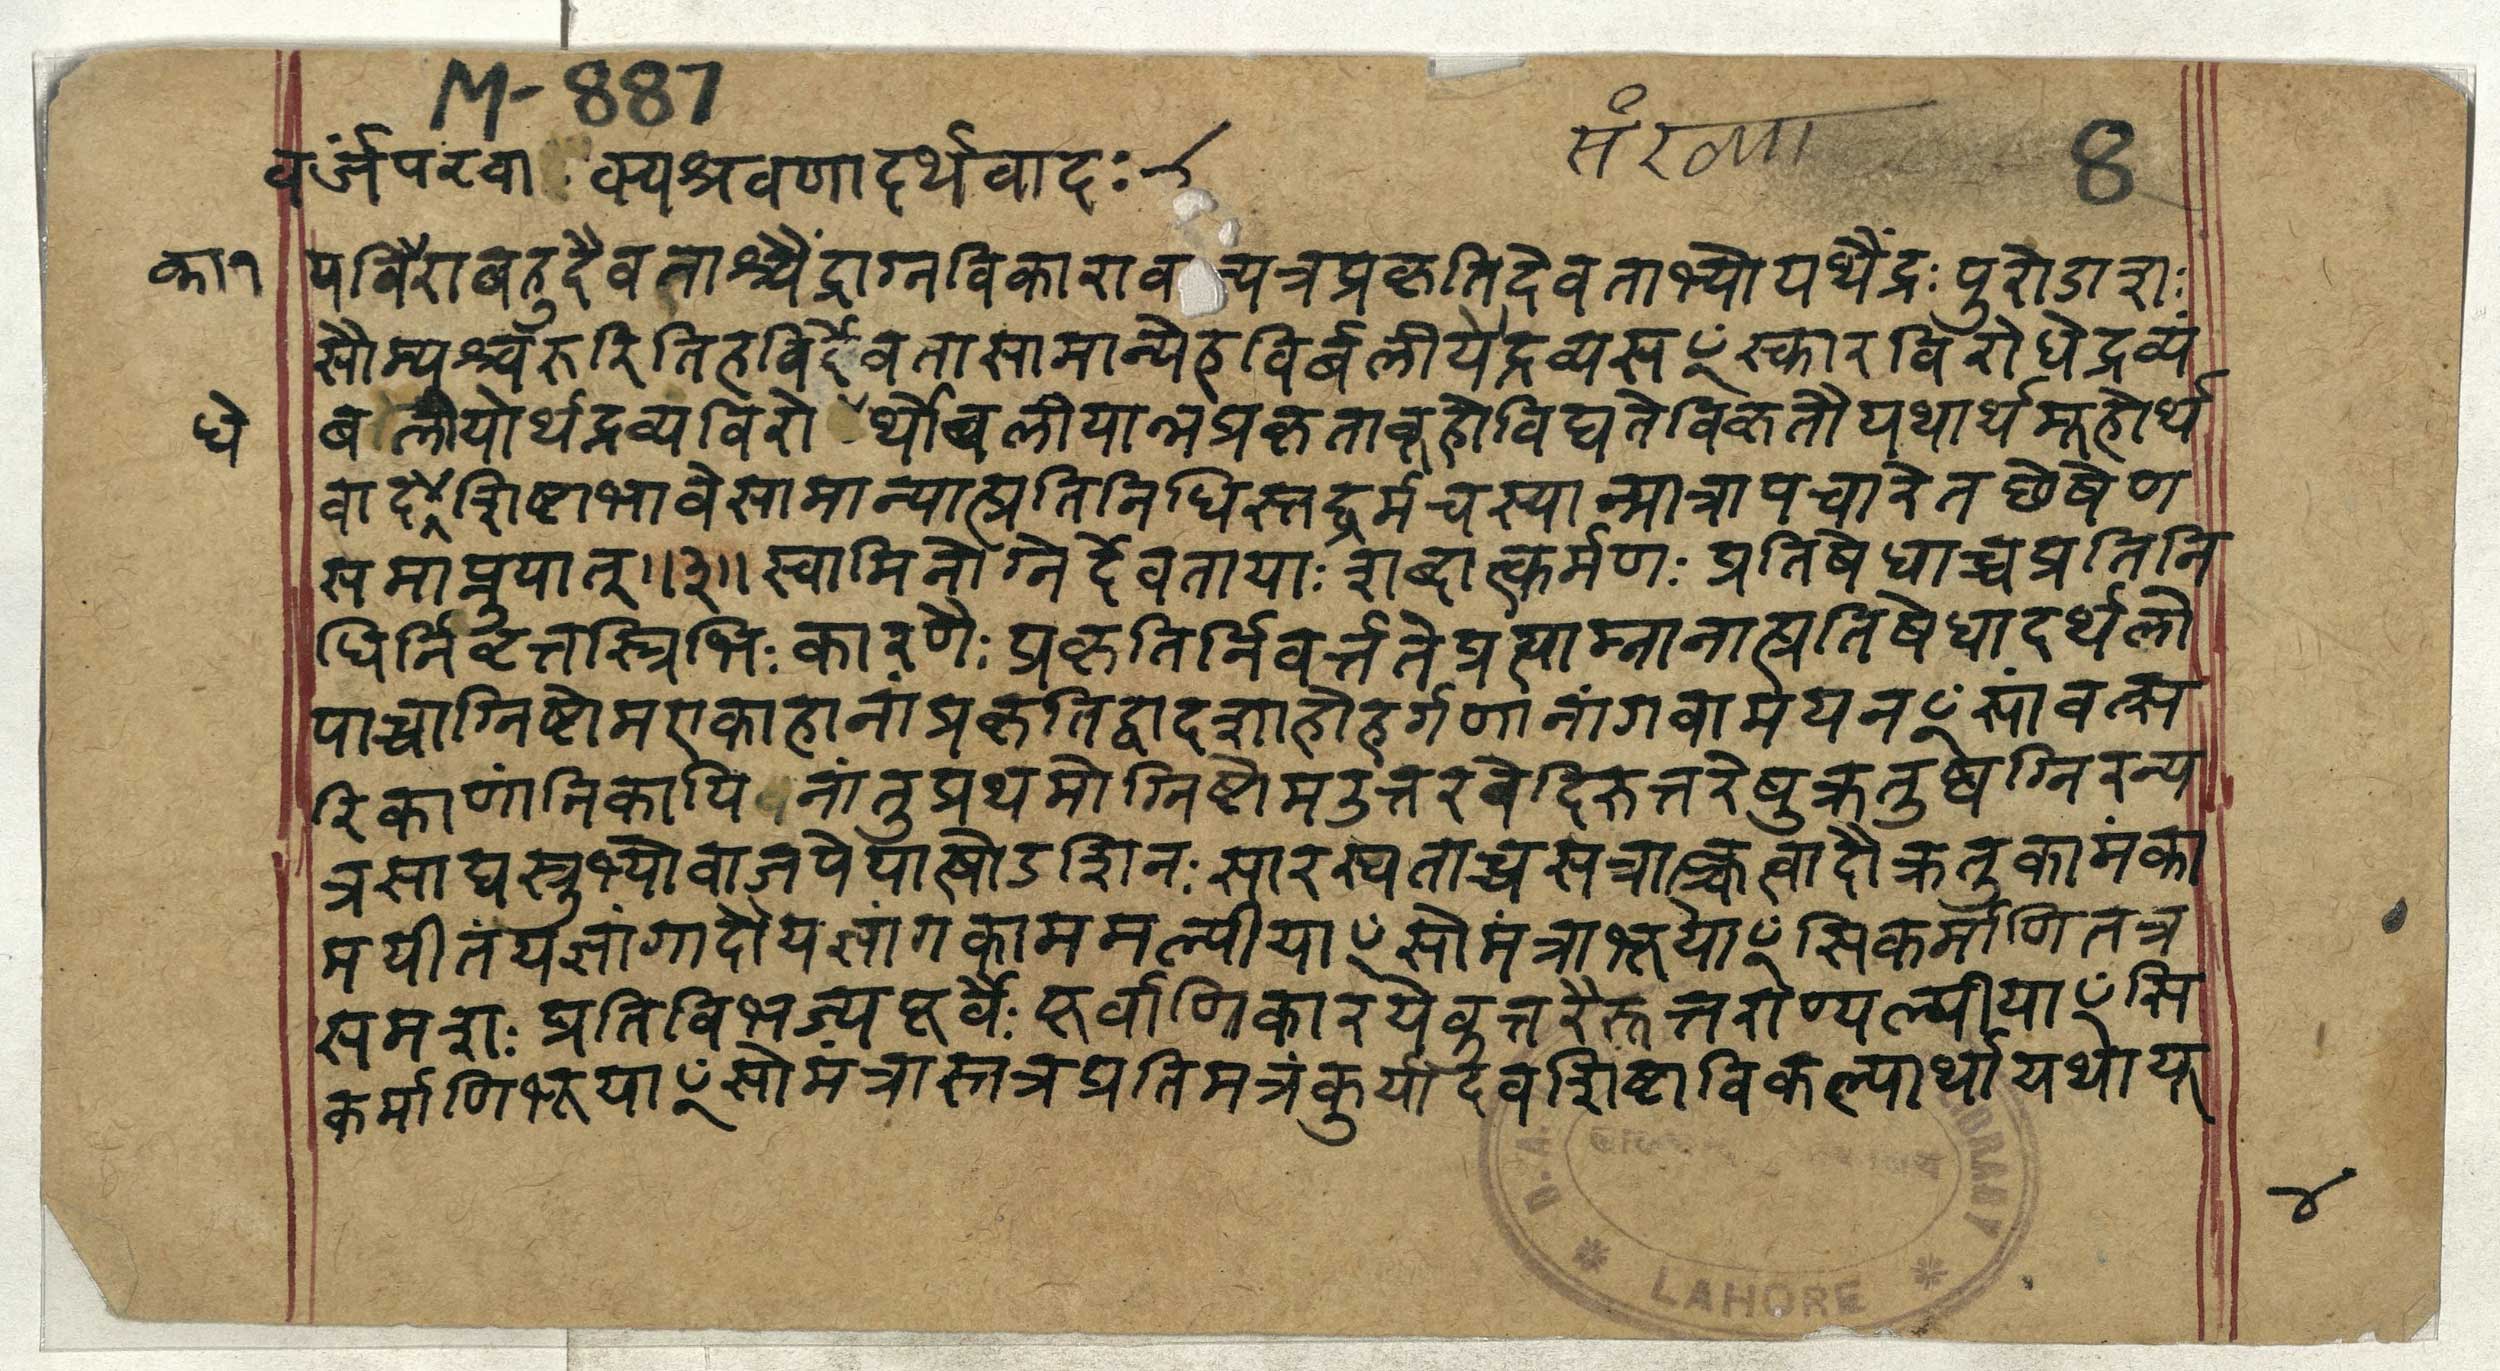 M-887
8
वर्जंपरवाक्यश्रवणादर्थवादः
का१
पर्विराबहुदैवताश्चैंद्राग्नविकारावन्यत्रप्रकृतिदेवताभ्योयथैंद्रः पुरोडाशः
सौम्यश्चरुरितिहविर्देवतासामान्येहविर्बलीयोद्रव्यसꣳस्कारविरोधेद्रव्यं
धे
बलीयोर्थद्रव्यविरोर्थोबलीयान्नप्रकृतावूहोविद्यतेविकृतौयथार्थमूहोर्थ
वादꣳशिष्टाभावेसामान्यात्प्रतिनिधिस्तद्धर्मचस्यान्मात्रापचारेतछेषेण
समाप्नुयात्॥३॥स्वामिनोग्नेर्देवतायाः शब्दात्कर्मणः प्रतिषेधाच्चप्रतिनि
धिर्निवृत्तस्त्रिभिः कारणैः प्रकृतिर्निवर्त्ततेप्रत्याम्नानात्प्रतिषेधादर्थलो
पाच्चाग्निष्टोमएकाहानांप्रकृतिद्वादशाहोहर्गणानांगवामयनꣳसांवत्स
रिकाणांनिकायिनांतुप्रथमोग्निष्टोमउत्तरवेदिरुत्तरेषुक्रतुष्वग्निरन्य
त्रसाद्यस्क्रेभ्योवाजपेयात्षोडशिनः सारस्वताच्चसत्रात्क्रत्वादौक्रतुकामंका
मयीतंयज्ञांगादौयज्ञांगकाममल्पीयाꣳसोमंत्राभूयाꣳसिकर्माणितत्र
समशः प्रतिविभज्यपूर्वैः पूर्वाणिकारयेवुत्तरैरुत्तराण्यल्पीयाꣳसि
कर्माणिभूयाꣳसोमंत्रास्तत्रप्रतिमत्रंकुर्यादवशिष्टाविकल्पार्थायथायू
४
LAHORE